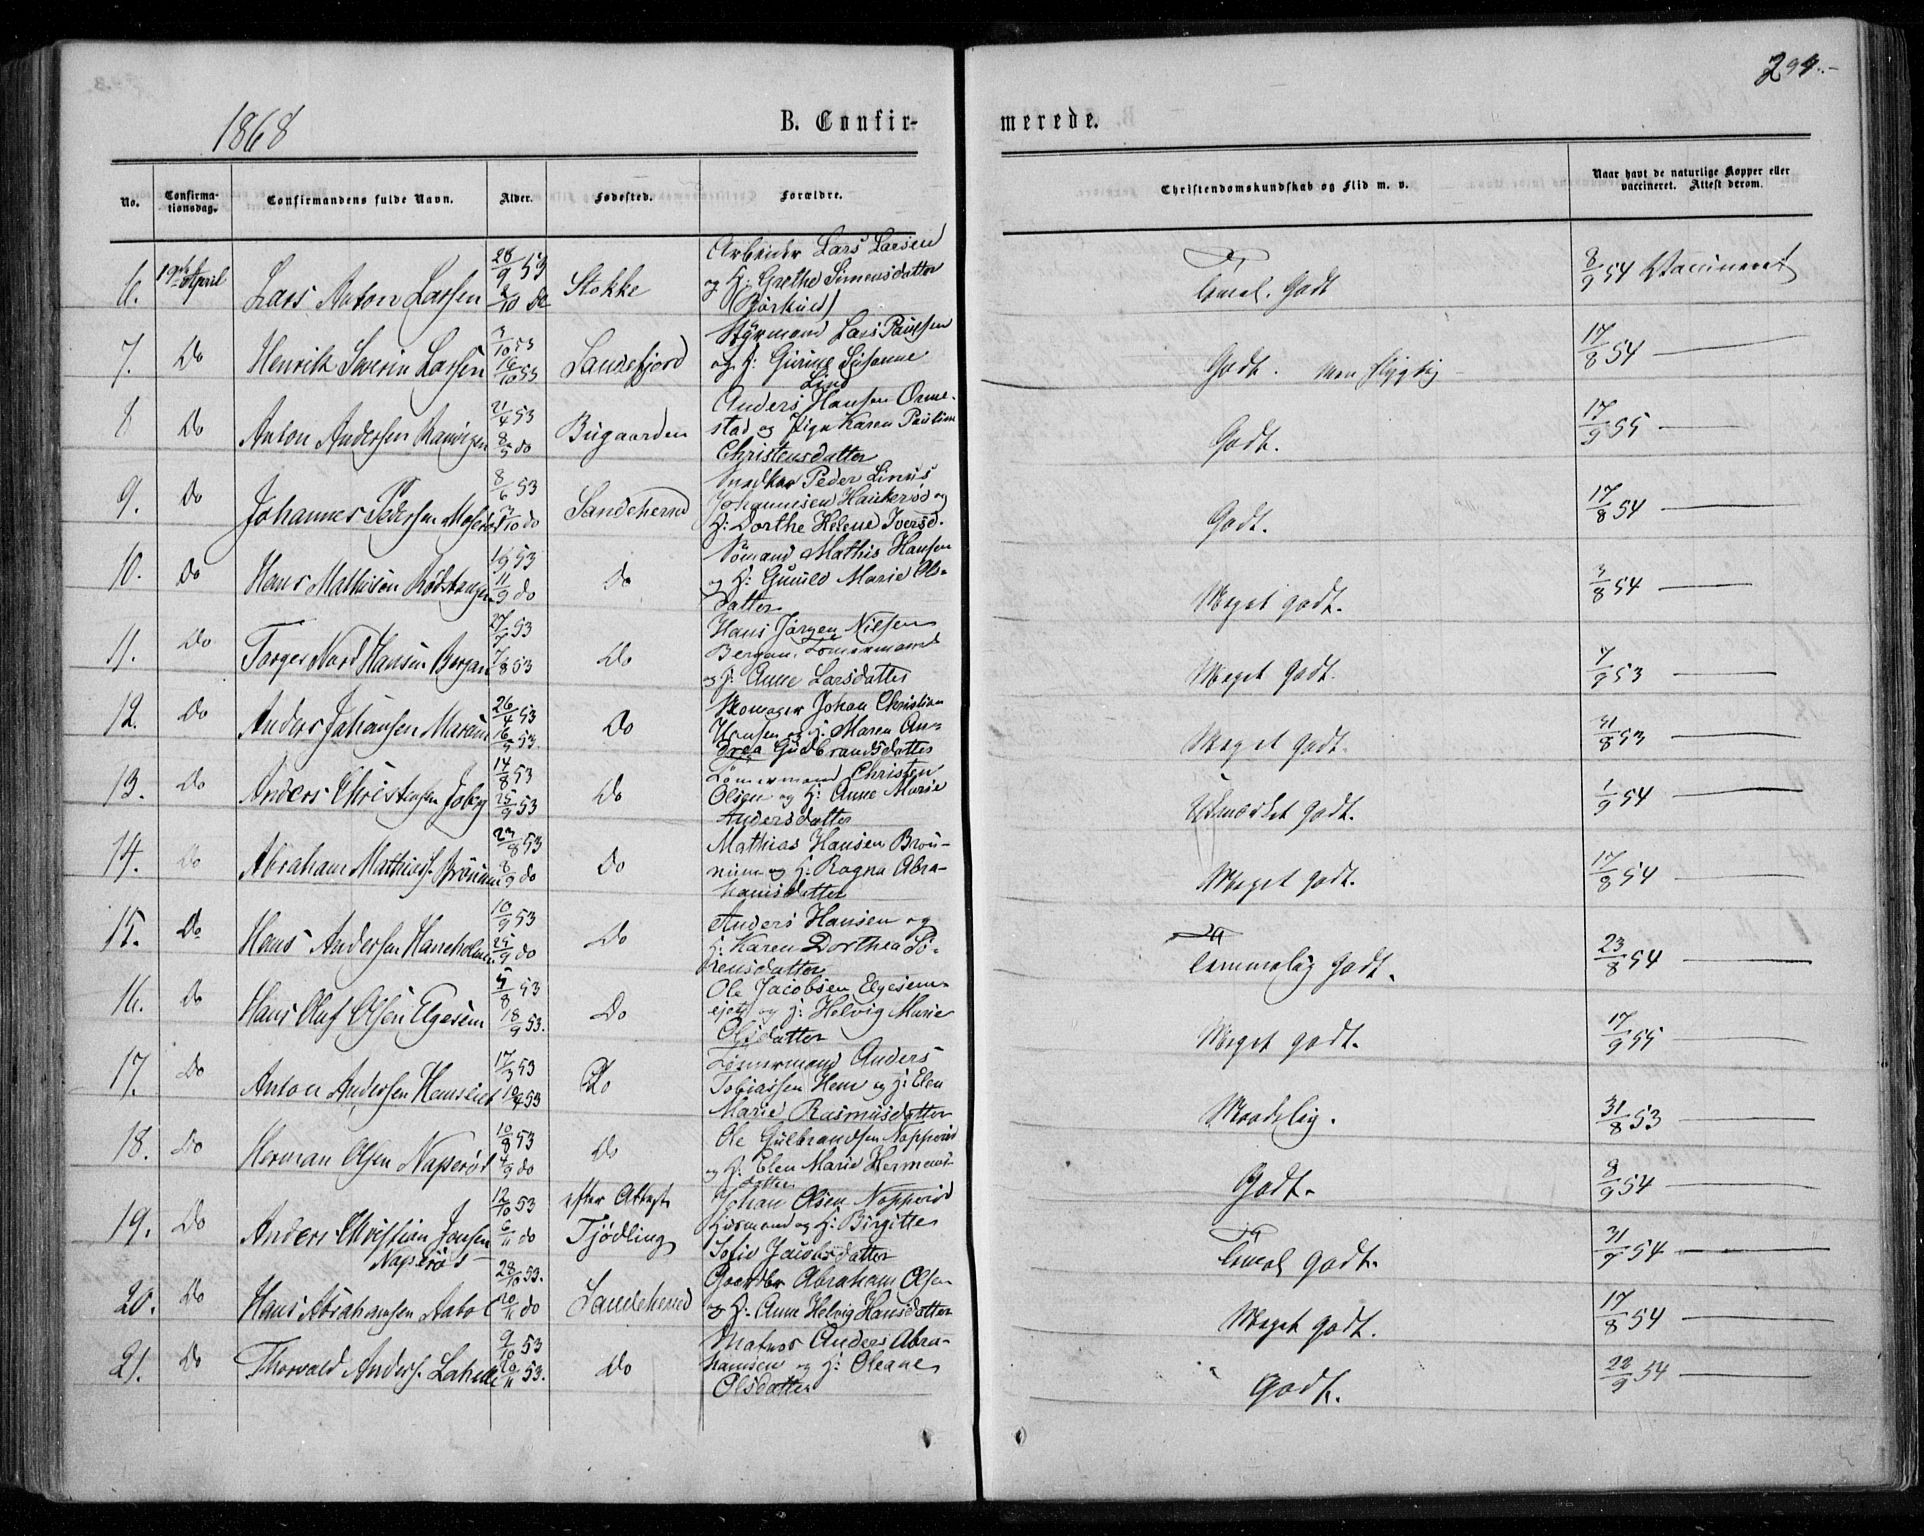 294.
1868
B. Confir-
merede.
No.
Confirma-
tionsdag.
Confirmandens fulde Navn.
Alder.
Fødested.
Forældre.
Christendomskundskab og Flid m. v.
Naar havt de naturlige Kopper eller
vaccineret. Attest derom.
6. 19de April Lars Anton Larsen 28/9 53 /10 do Stokke
Arbeider Lars Larsen
og H: Grethe Simensdatter
Godt 8/9 54 Vaccineret
7. Do Henrik Severin Larsen 16/10 53 Sandefjord
Styrmand Lars Paulsen
og H: Susanne
Lind
Godt. men flygtig 17/8 54
8 Do Anton Andersen 21/4 53 8/5 do Bugaarden
Anders Hansen Orme-
stad og Pige Karen Pauline
Christensdatter
Godt. 17/9 55
9. Do Johannes Pedersen 8/6 53 /10 do Sandeherred
Snedker Peder Linus
Johannesen Haukerød og
H: Dorthe Helene Iversd.
Godt. 17/8 54
10. Do Hans Mathisen 53 11/9 do Do
Sømand Mathis Hansen
og H: Gunild Marie Ols-
datter
Meget godt. 3/8 54
11. Do Torger Hansen Bergan 27/ 53 7/8 53 Do
Hans Jørgen Nilsen
Bergan, Tømermand
og H: Anne Larsdatter
Meget godt. 7/9 53
12. Do Anders Johansen 26/4 53 16/5 53. Do
Skomager Johan Christian
Hansen og H: Maren An-
drea Gudbrandsdatter
Meget godt. 31/8 53
13. Do Anders Christensen 14/8 53 25/9 53 Do
Tømermand Christen
Olsen og H: Anne Marie
Andersdatter
Udmærket godt. 1/9 54
14. Do Abraham Mathias. 23/8 53 8/9 do Do
Mathias Hansen Brøn-
num og H: Ragna Abra-
hamsdatter
Meget godt. 17/8 54
15. Do Hans Andersen Haneholmen 10/9 53 25/9 do Do
Anders Hansen og
H: Karen Dorthea Sø-
rensdatter
Temmelig godt. 23/8 54
16. Do Hans Oluf Olsen Elgesem 5/8 53 18/9 53. Do
Ole Jacobsen Elgesem-
ejet og H: Helvig Marie
Olsdatter
Meget godt. 17/9 55
17. Do Anton Andersen 17/3 53 10/4 53 Do
Tømermand Anders
Tobiassen Hem og H: Elen
Marie Rasmusdatter
Maadelig. 31/8 53
18. Do Herman Olsen Naperød 10/8 53 4/9 do Do
Ole Gulbrandsen Napperød
og H: Elen Marie Hermens-
datter
Godt. 8/9 54
19. Do Anders Christian Jonsen
Naperød 12/10 53 6/11 do efter Attest
Tjødling
Johan Olsen Napperød
Husmand og H: Birgitte
Sofie Jacobsdatter
godt. 31/ 54
20. Do Hans Abrahamsen 28/10 53. 20/11 do Sandeherred
Gaardbr Abraham Olsen
og H: Anne Helvig Hansdatter
Meget godt. 17/8 54
21. Do Thorvald Anders. 9/10 53 20/11 53. Do
Matros Anders Abra-
hamsen og H: Oleane
Olsdatter
Godt. 22/9 54